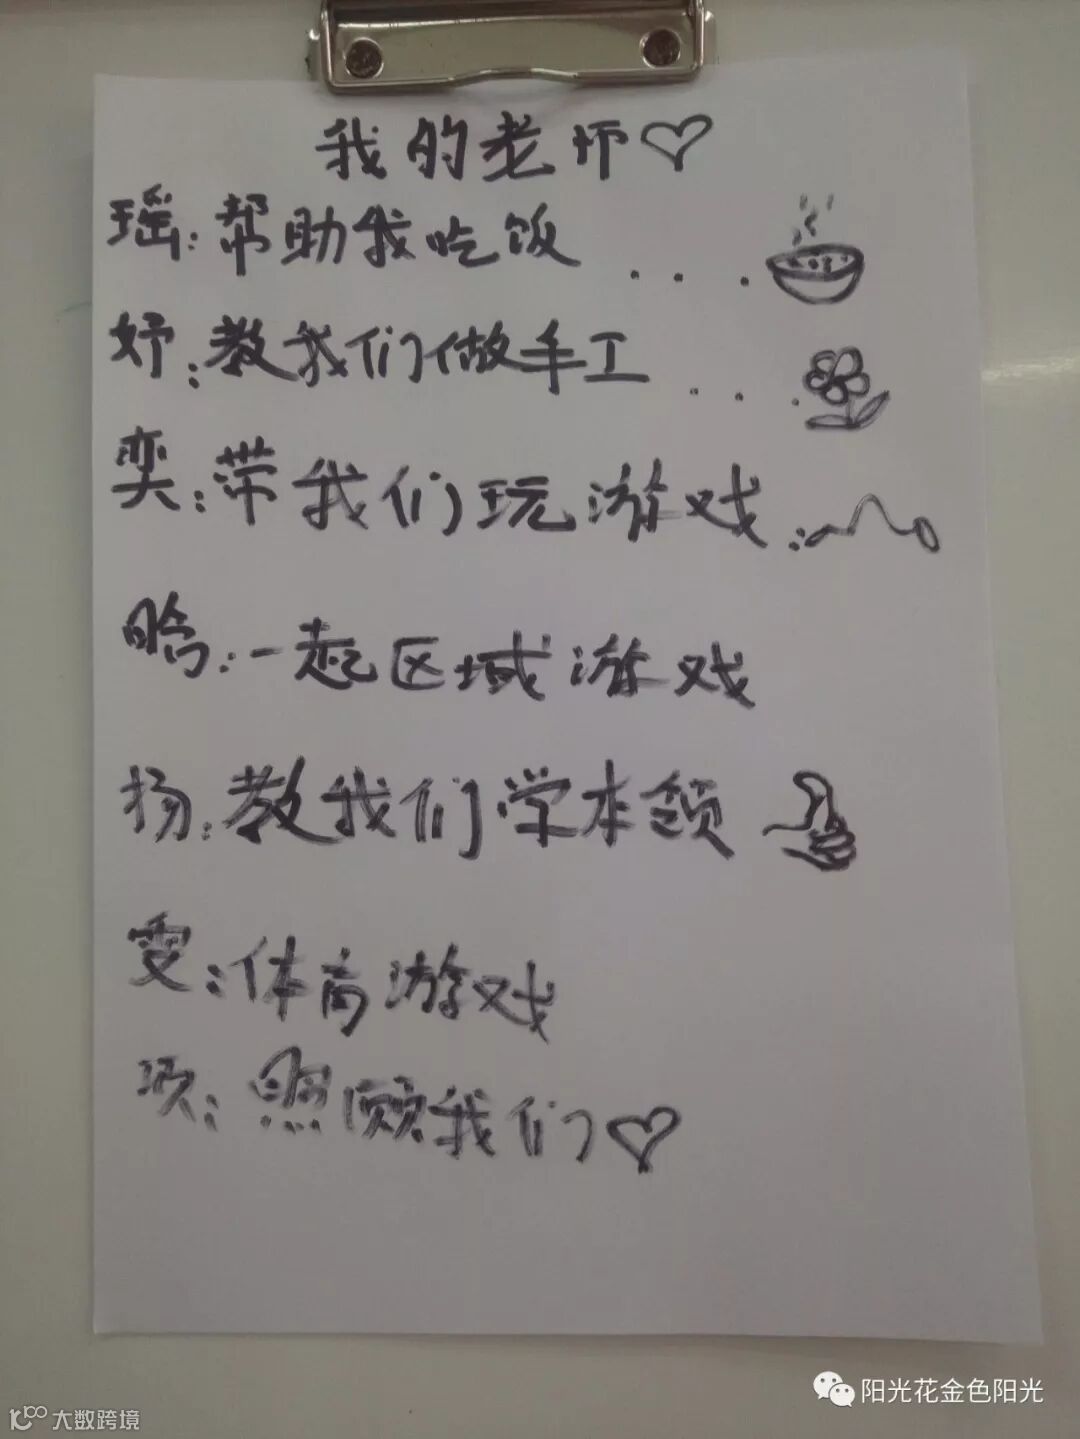 我的老师♡
瑶:帮助我吃饭...
妤:教我们做手工...
奕:带我们玩游戏:
晗:一起区域游戏
扬:教我们学本领
雯:体育游戏
:照顾我们♡
阳光花金色阳光
大数跨境